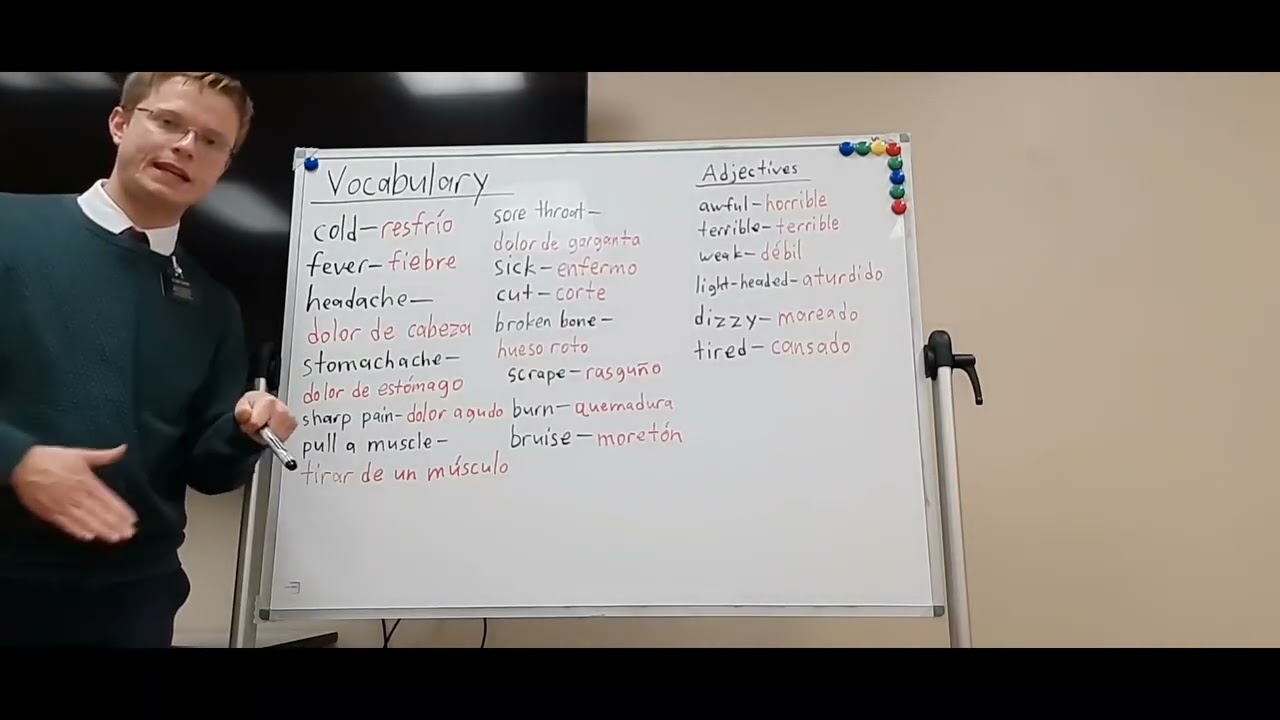 Vocabulary
cold-resfrío
fever-fiebre
headache-
dolor de cabeza
stomachache-
dolor de estómago
sharp pain-dolor agudo
pull a muscle-
tirar de un músculo
sore throat-
dolor de garganta
sick-enfermo
cut-corte
broken bone-
hueso roto
scrape-rasguño
burn-quemadura
bruise-moretón
Adjectives
awful-horrible
terrible-terrible
weak-débil
light-headed-aturdido
dizzy-mareado
tired-cansado